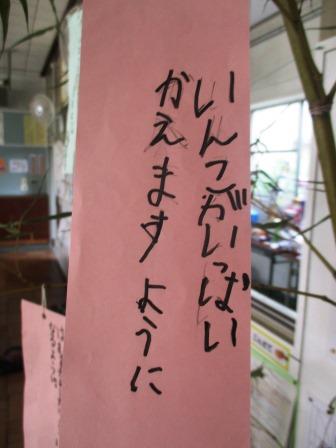 いんこがいっぱい
かえます ように